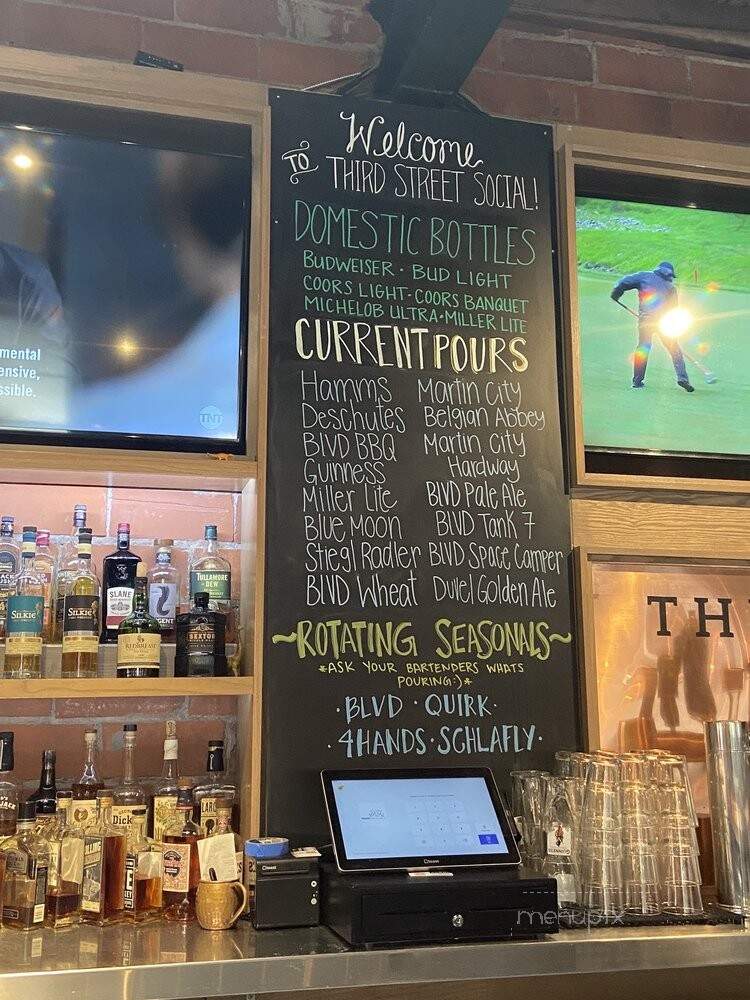 Welcome
TO THIRD STREET SOCIAL!
DOMESTIC BOTTLES
BUDWEISER · BUD LIGHT
COORS LIGHT · COORS BANQUET
MICHELOB ULTRA · MILLER LITE
CURRENT POURS
Hamms
Deschutes
BLVD BBQ
Guinness
Miller Lite
Blue Moon
Stiegl Radler
BLVD Wheat
Martin City
Belgian Abbey
Martin City
Hardway
BLVD Pale Ale
BLVD Tank 7
BLVD Space Camper
Duvel Golden Ale
~ROTATING SEASONALS~
*ASK YOUR BARTENDERS WHATS
POURING:)*
·BLVD · QUIRK·
·4HANDS·SCHLAFLY·
mental
ensive,
ssible.
TNT
TH
SILKIE
SILKIE
SLANE
TULLAMORE
DEW
REDBREAST
SEXTON
Dick
menupix